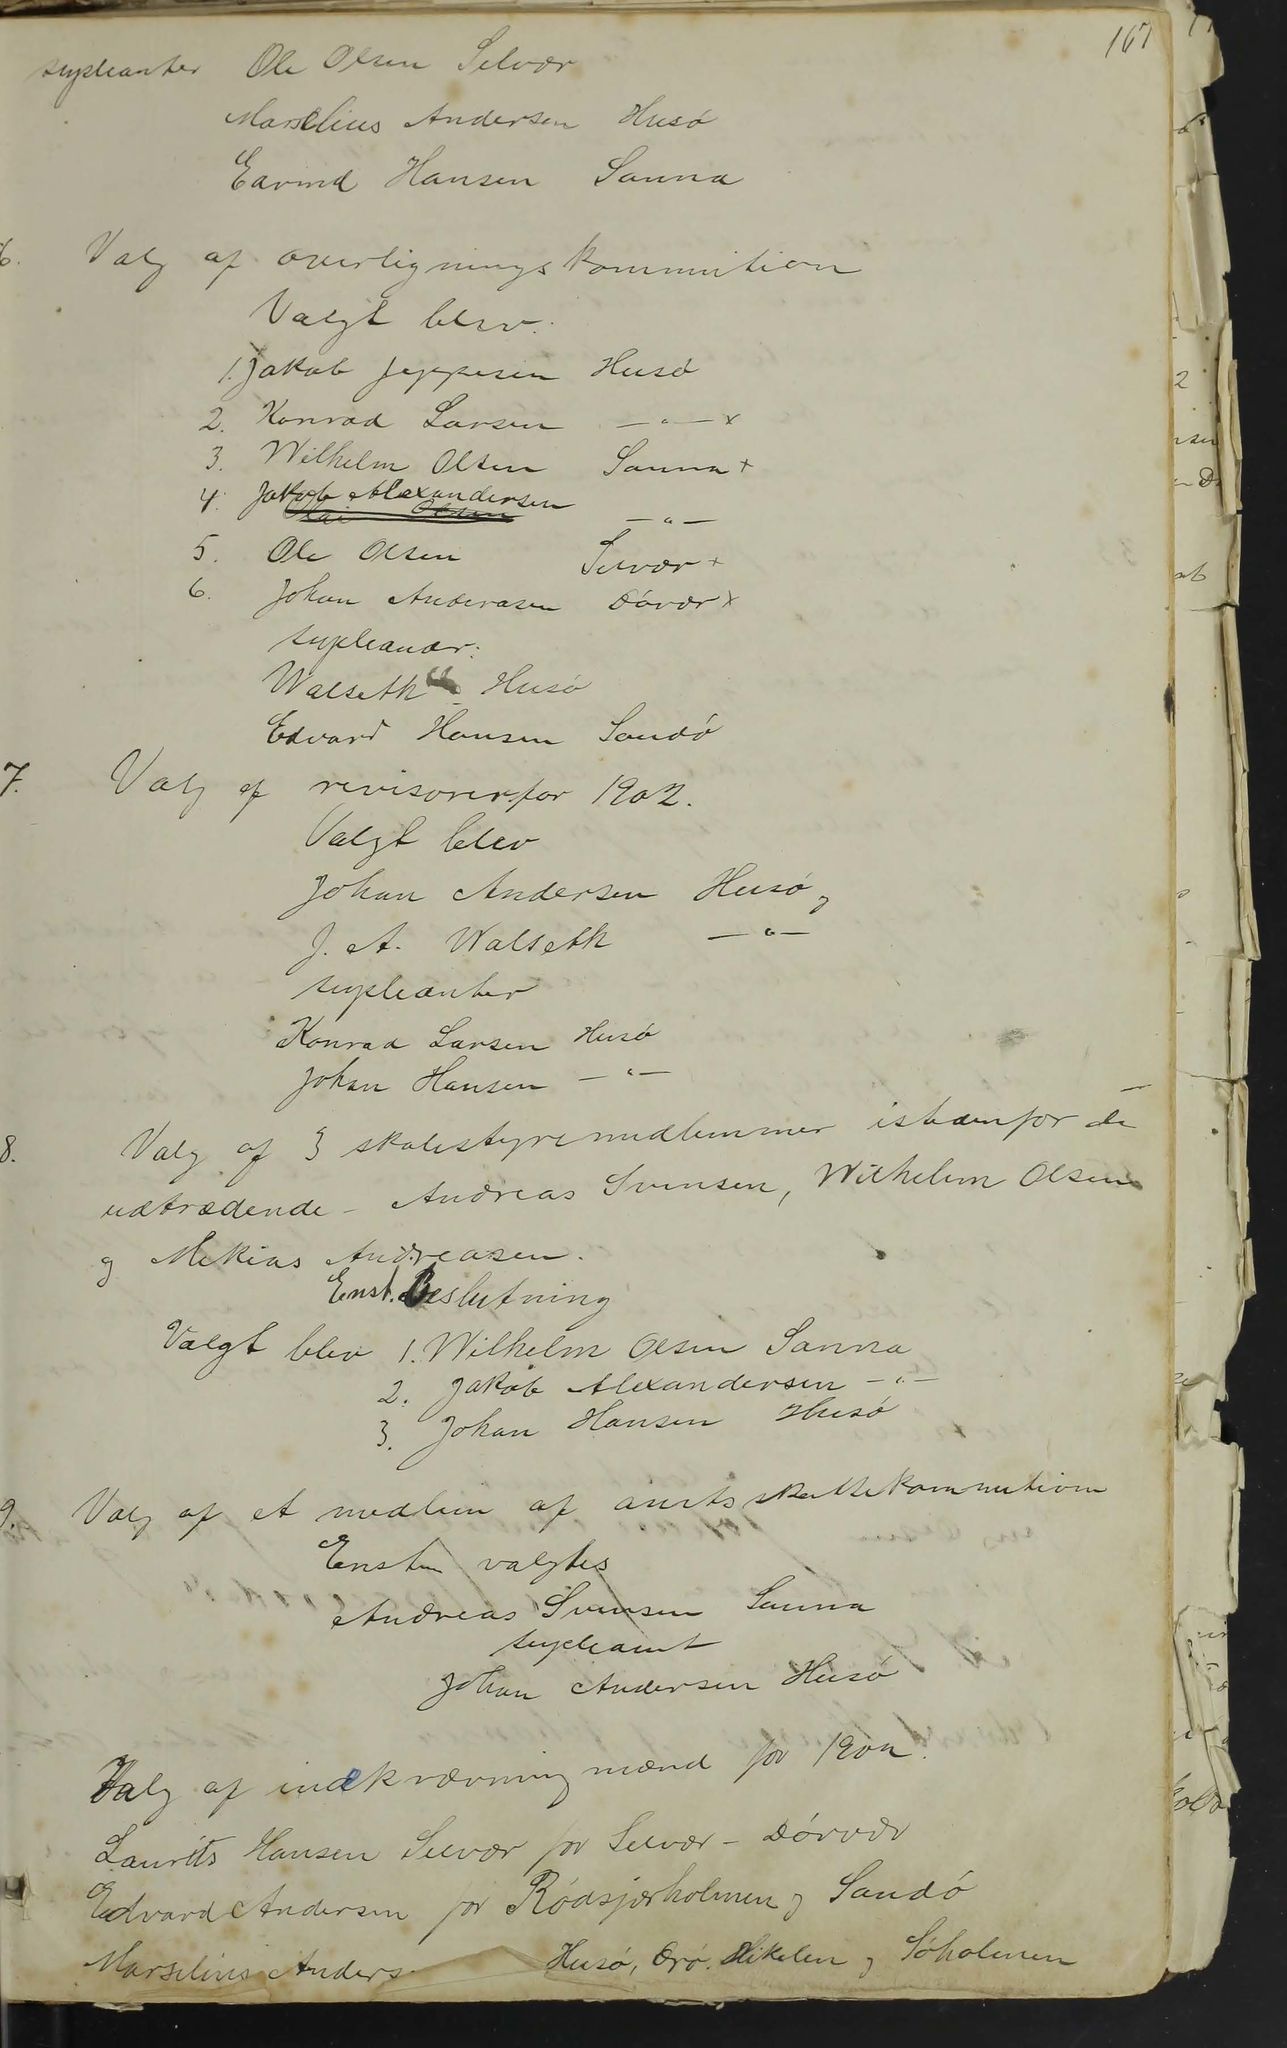 167
supleanter Ole Olsen Selvær
Marselius Andersen Husö
Edvind Hansen Sanna
6. Valg af overligningskommition
Valgt blev.
1. Jakob Jeppesen Husö
2. Konrad Larsen —"— x
3. Wilhelm Olsen Sanna +
4. Jakob Alexandersen —"—
Olai Olsen
5. Ole Olsen Selvær +
6. Johan Anderasen Dörvær x
supleandr:
Walseth Husö
Edvard Hansen Sandö
7. Valg af revisorer for 1902.
Valgt blev
Johan Andersen Husö og
J. A. Walseth —"—
supleanter
Konrad Larsen Husö
Johan Hansen —"—
8. Valg af 3 skolestyremedlemmer istedenfor de
udtrædende - Andreas Svensen, Wilhelm Olsen
og Mekias Andreasen.
Enst. Beslutning
Valgt blev 1. Wilhelm Olsen Sanna
2. Jakob Alexandersen —"—
3. Johan Hansen Husö
9. Valg af et medlem af amtsskattekommitionen
Enstm valgtes
Andreas Svensen Sanna
supleant
Johan Andersen Husö
Valg af indkrævningmænd for 1902.
Laurits Hansen Selvær for Selvær - Dörvær
Edvard Andersen for Rödsjærholmen og Sandö
Marselius Anders Husö, Örö. Hikelen og Söholmen